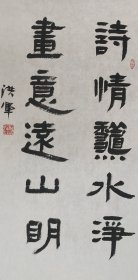 詩情龝水淨
畫意遠山明
洪